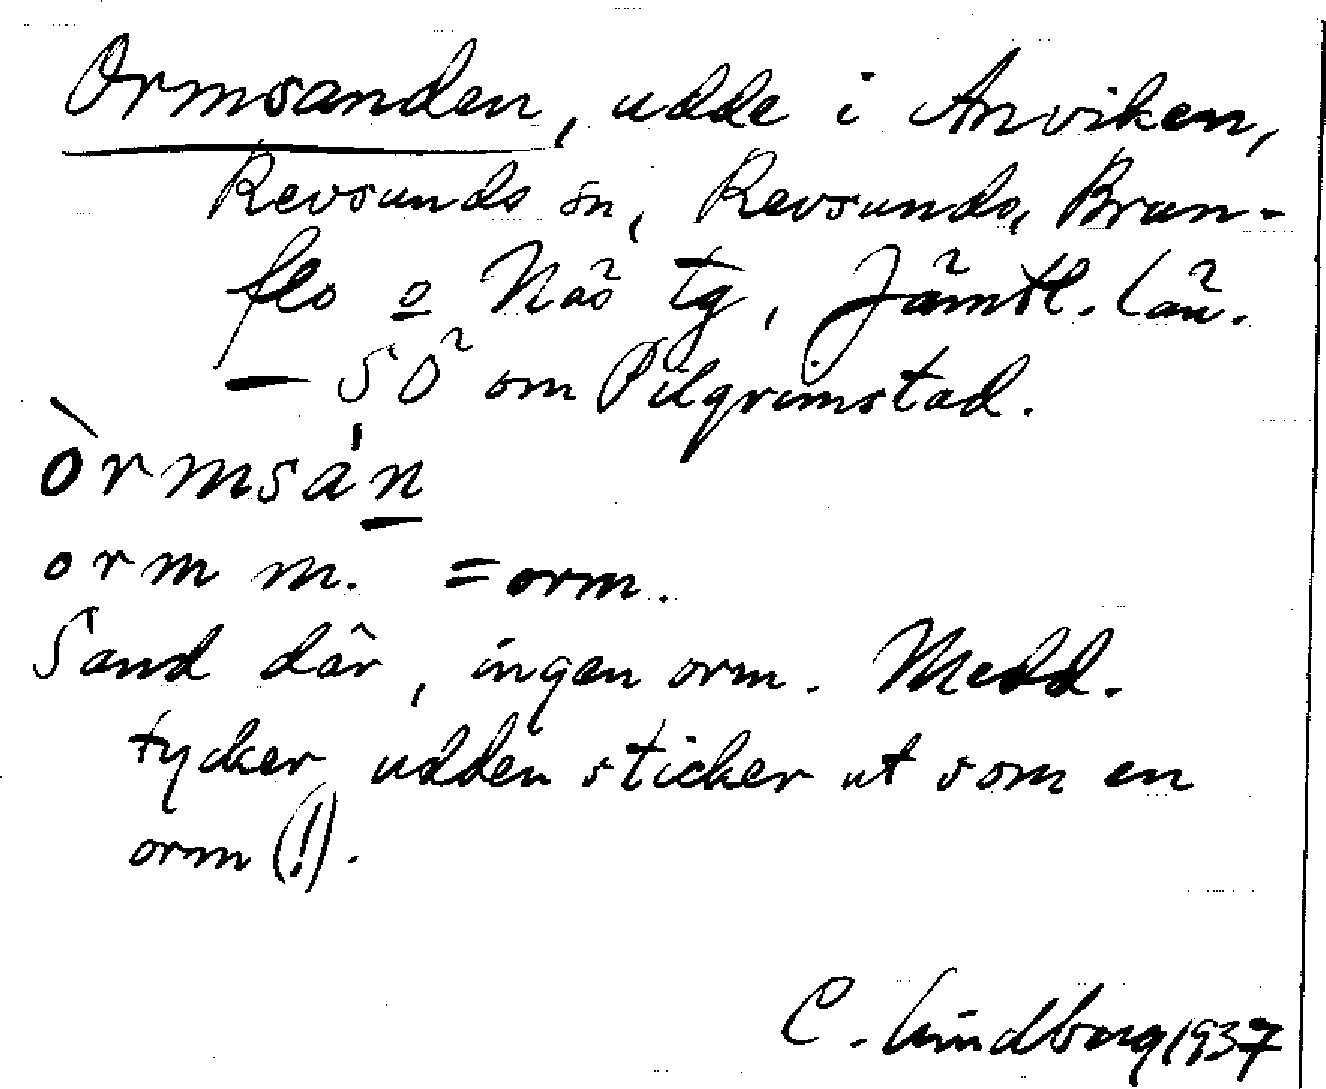 Ormsanden, udde i Anviken,
Revsunds sn, Revsunds, Brun-
flo o Näs tg, Jämtl. län.
— SÖ om Pilgrimstad.
òrmsán
orm m. = orm.
Sand där, ingen orm. Medd.
tycker udden sticker ut som en
orm (!).
C. Lindberg 1937